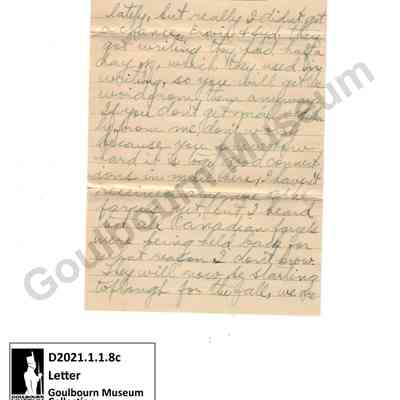 lately, but really I didn't get
a chance, Ervin & Syd. they
got writing they had half a
day off, which they used in
writing, so you will get the
word from them anyways
If you don't get much
from me, don't
because you know how
hard it is to
in here, I haven't
received
yet, but I heard
that all Canadian
were being held back for
that reason I don't know.
They will now be starting
to plough for the fall, we are
Goulbourn Museum
D2021.1.1.8c
Letter
Goulbourn Museum
Collection
GOULBOURN